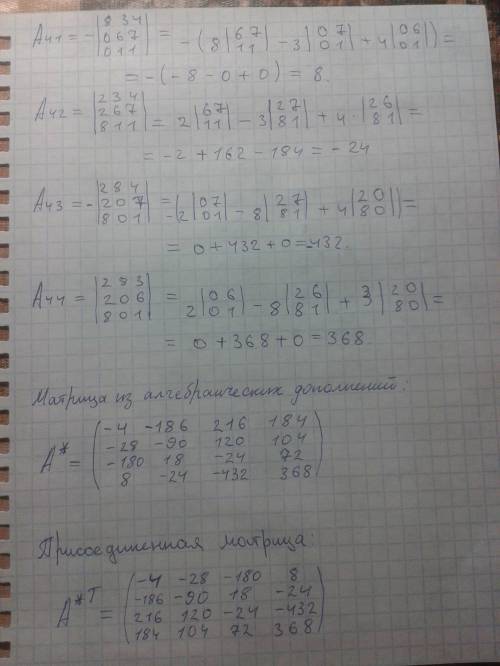 A₄₁ = -|8 3 4; 0 6 7; 0 1 1| = -(8|6 7; 1 1| - 3|0 7; 0 1| + 4|0 6; 0 1|) =
= -(-8 - 0 + 0) = 8.
A₄₂ = |2 3 4; 2 6 7; 8 1 1| = 2|6 7; 1 1| - 3|2 7; 8 1| + 4·|2 6; 8 1| =
= -2 + 162 - 184 = -24
A₄₃ = -|2 8 4; 2 0 7; 8 0 1| = -(2|0 7; 0 1| - 8|2 7; 8 1| + 4|2 0; 8 0|) =
= 0 + 432 + 0 = -432.
A₄₄ = |2 8 3; 2 0 6; 8 0 1| = 2|0 6; 0 1| - 8|2 6; 8 1| + 3|2 0; 8 0| =
= 0 + 368 + 0 = 368.
Матрица из алгебраических дополнений:
-4 -186 216 184
-28 -90 120 104
A* =
-180 18 -24 72
8 -24 -432 368
Присоединенная матрица:
-4 -28 -180 8
-186 -90 18 -24
A*ᵀ =
216 120 -24 -432
184 104 72 368